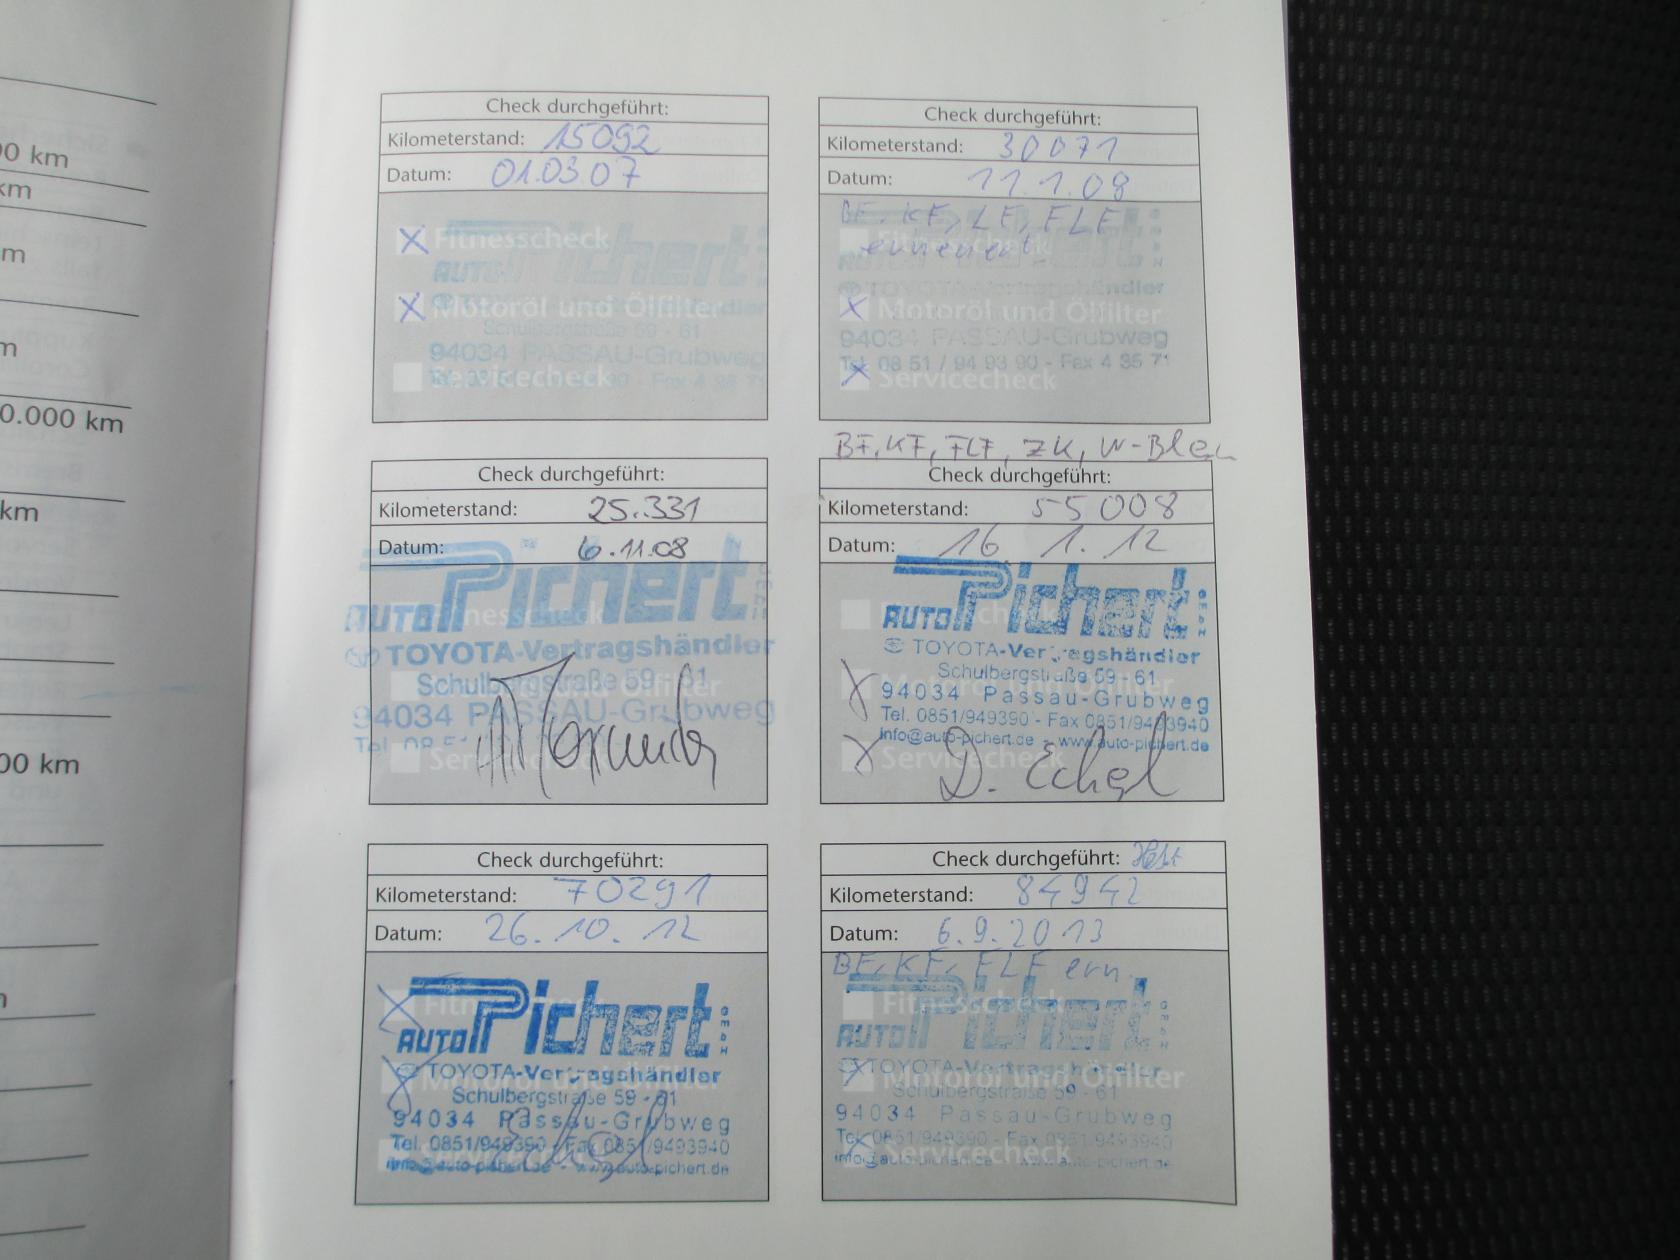 00 km
km
m
m
0.000 km
km
00 km
Check durchgeführt:
Kilometerstand: 15092
Datum: 01.03.07
Fitnesscheck
AUTO Pichert
Motoröl und Ölfilter
Schulbergstraße 59 - 61
94034 PASSAU-Grubweg
Servicecheck
Check durchgeführt:
Kilometerstand: 30071
Datum: 11.1.08
BF, KF, LF, FLF
erneuert
Fitnesscheck
TOYOTA-Vertragshändler
Motoröl und Ölfilter
94034 PASSAU-Grubweg
Tel. 08 51 / 94 93 90 - Fax 4 35 71
Servicecheck
Check durchgeführt:
Kilometerstand: 25.331
Datum: 6.11.08
AUTO Pichert
Fitnesscheck
TOYOTA-Vertragshändler
Schulbergstraße 59 - 61
94034 PASSAU-Grubweg
Servicecheck
BF, KF, FLF, ZK, W-Blen
Check durchgeführt:
Kilometerstand: 55008
Datum: 16 1. 12
AUTO Pichert GmbH
Fitnesscheck
TOYOTA-Vertragshändler
Schulbergstraße 59 - 61
Motoröl und Ölfilter
94034 Passau-Grubweg
Tel. 0851/949390 - Fax 0851/9493940
info@auto-pichert.de - www.auto-pichert.de
Servicecheck
Check durchgeführt:
Kilometerstand: 70291
Datum: 26. 10. 12
Fitnesscheck
AUTO Pichert GmbH
TOYOTA-Vertragshändler
Motoröl und Ölfilter
Schulbergstraße 59 - 61
94034 Passau-Grubweg
Tel. 0851/949390 - Fax 0851/9493940
Servicecheck
info@auto-pichert.de www.auto-pichert.de
Check durchgeführt:
Kilometerstand: 84942
Datum: 6.9.2013
BF, KF, FLF ern.
Fitnesscheck
AUTO Pichert GmbH
TOYOTA-Vertragshändler
Motoröl und Ölfilter
Schulbergstraße 59 - 61
94034 Passau-Grubweg
Tel. 0851/949390 - Fax 0851/9493940
Servicecheck
info@auto-pichert.de www.auto-pichert.de